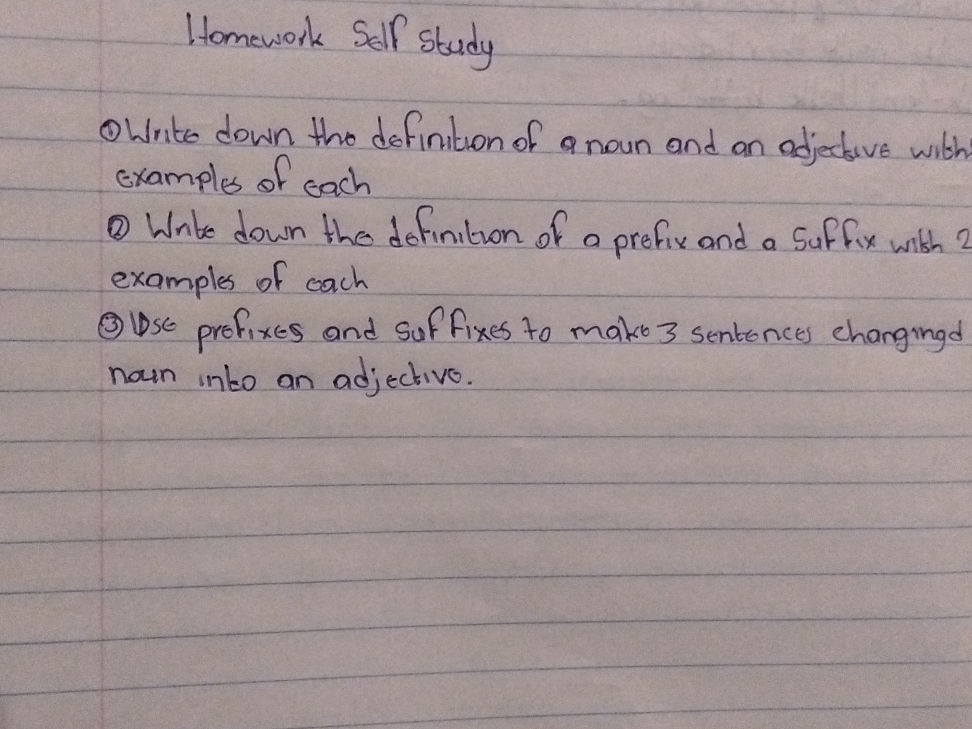 Homework Self Study
① Write down the definition of a noun and an adjective with
examples of each
② Write down the definition of a prefix and a suffix with 2
examples of each
③ Use prefixes and suffixes to make 3 sentences changing a
noun into an adjective.